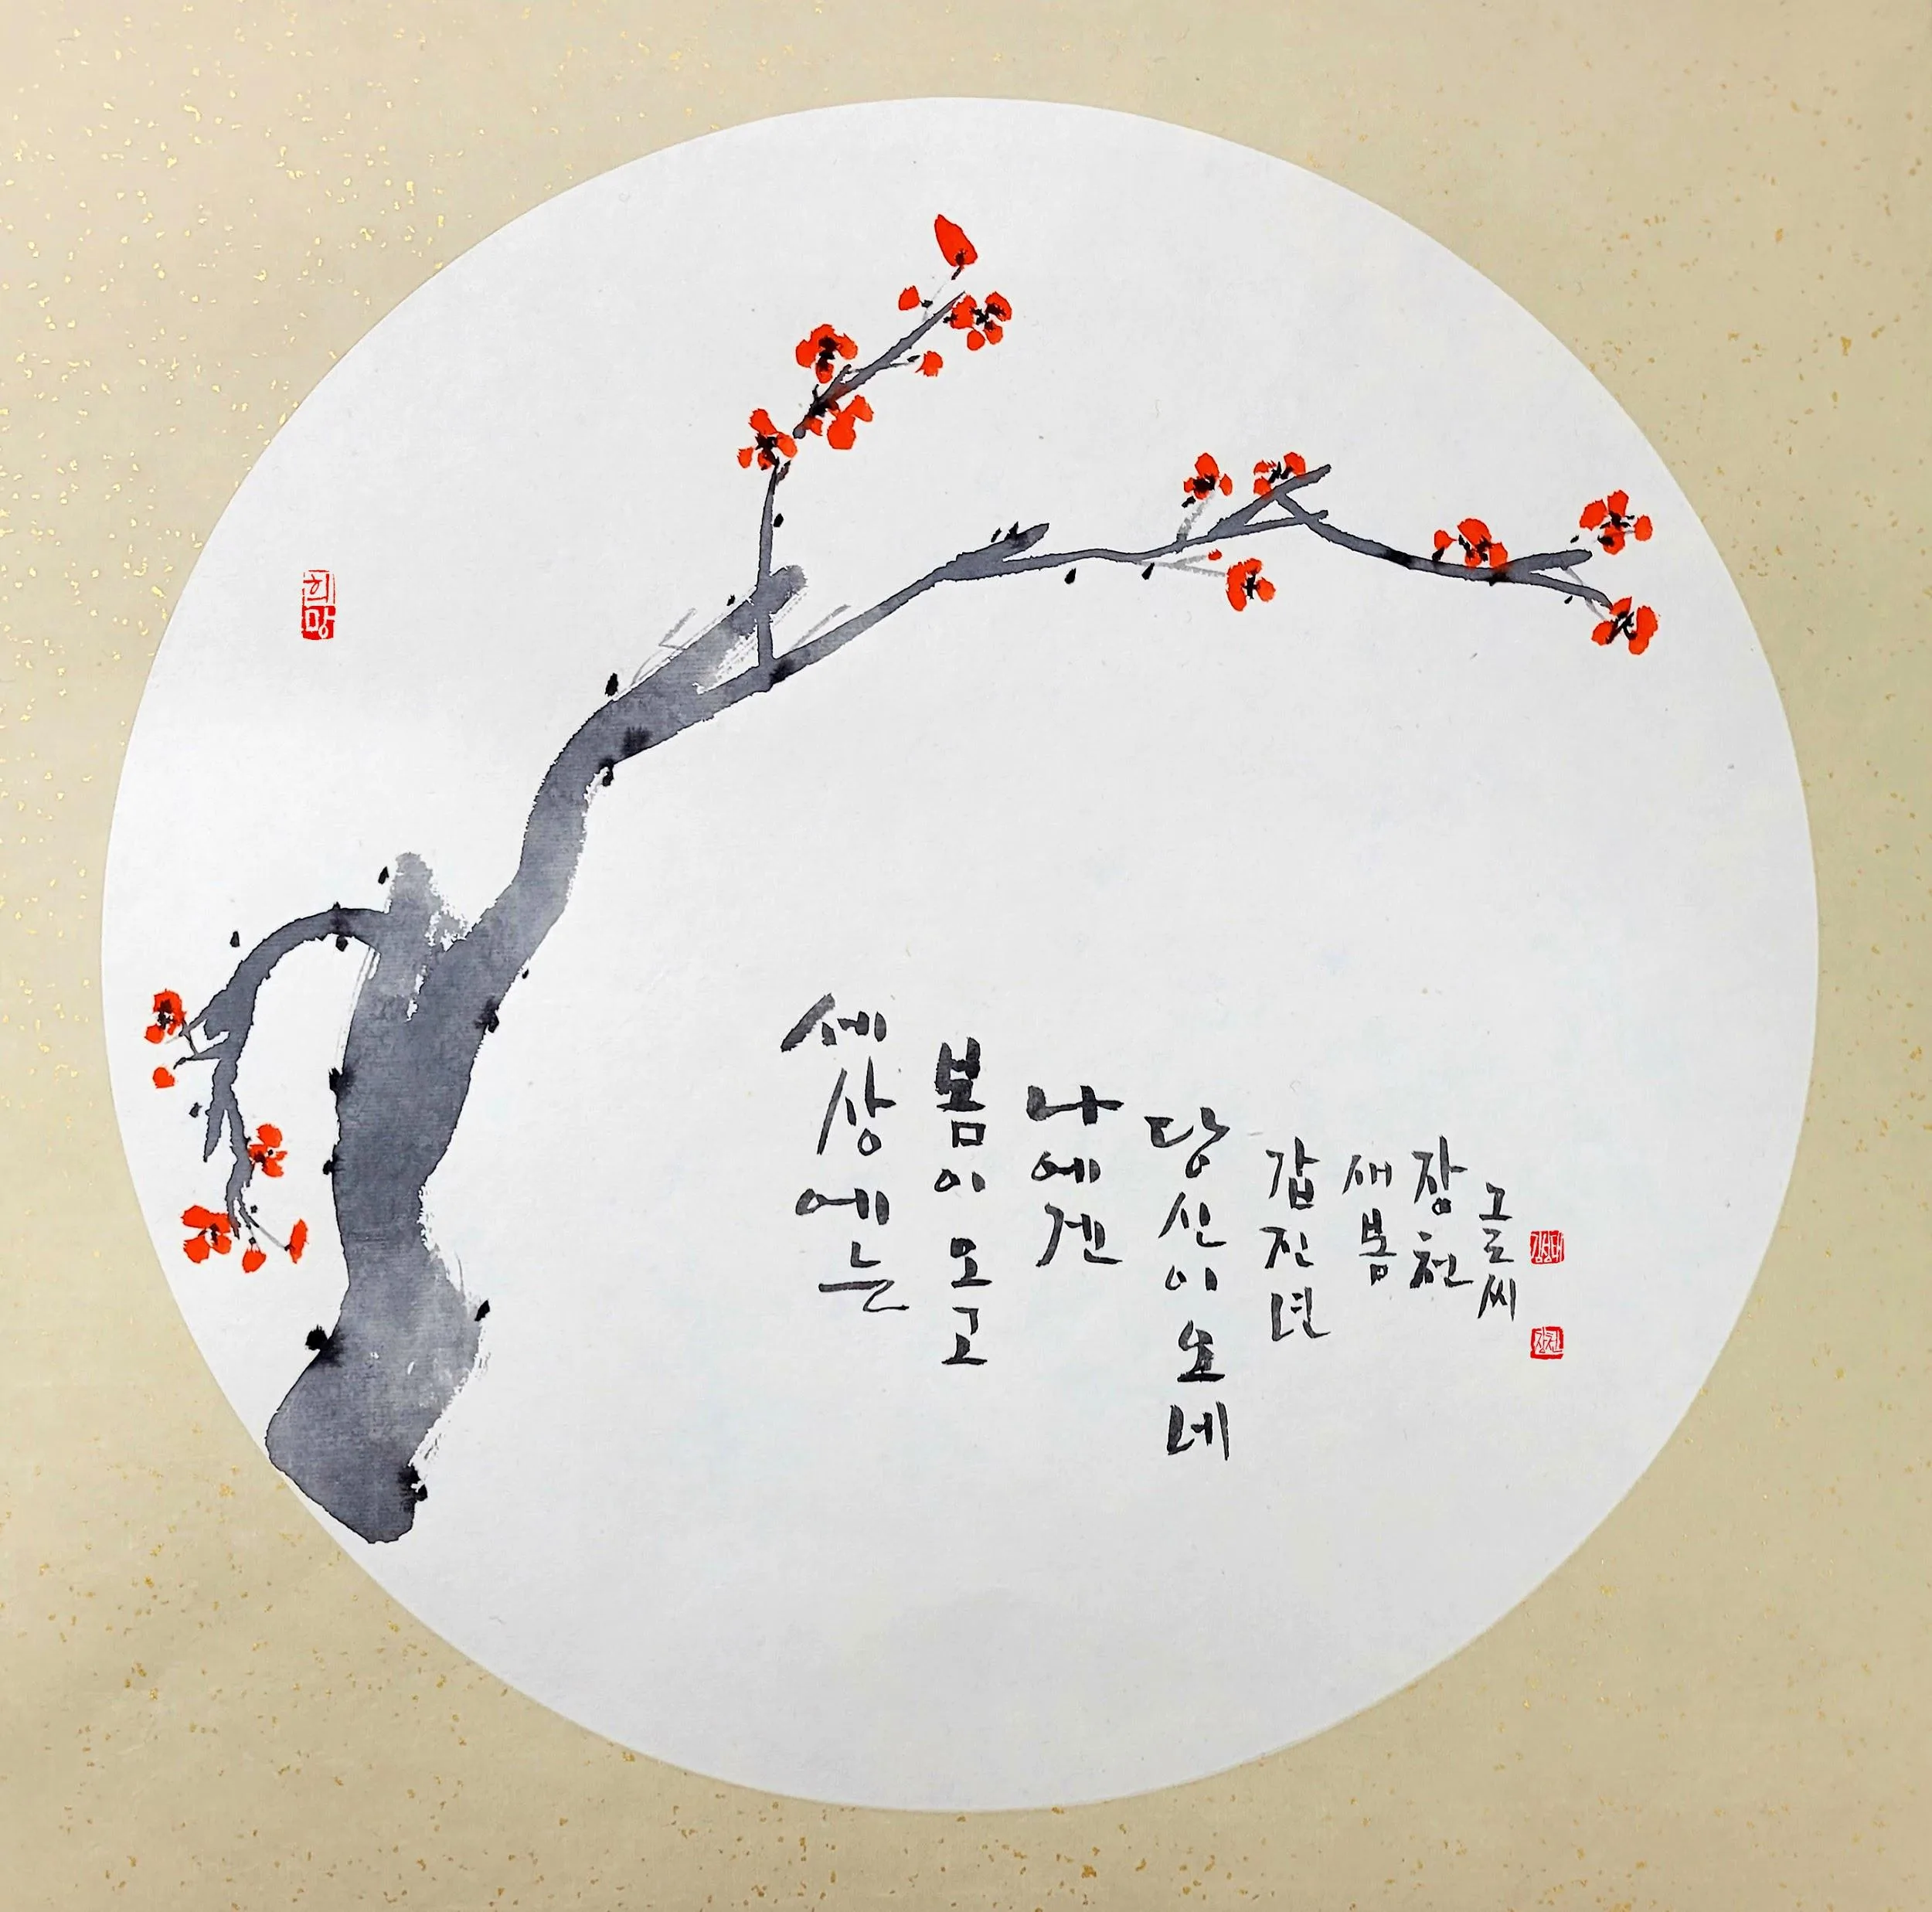 희망
세상에는
봄이 오고
나에겐
당신이 오네
갑진년
새봄
장천
그르씨
김성태
장천